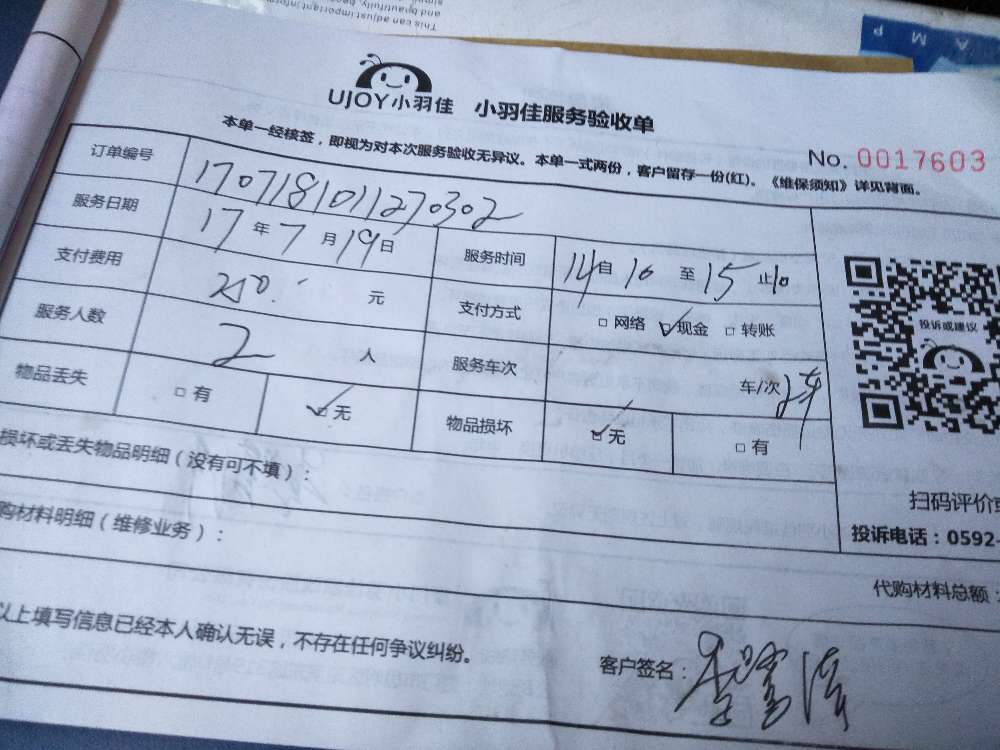 This can adjust important inform
and beautifully, bec
UJOY小羽佳 小羽佳服务验收单
本单一经核签，即视为对本次服务验收无异议。本单一式两份，客户留存一份(红)。《维保须知》详见背面。
No. 0017603
订单编号 1707181011270302
服务日期 17年7月19日 服务时间 14自10至15止10
支付费用 250. 元 支付方式 □网络 ☑现金 □转账
服务人数 2 人 服务车次 车/次
物品丢失 □有 ☑无 物品损坏 ☑无 □有
投诉或建议
损坏或丢失物品明细（没有可不填）：
扫码评价或
购材料明细（维修业务）：
投诉电话：0592-
代购材料总额：
以上填写信息已经本人确认无误，不存在任何争议纠纷。
客户签名：